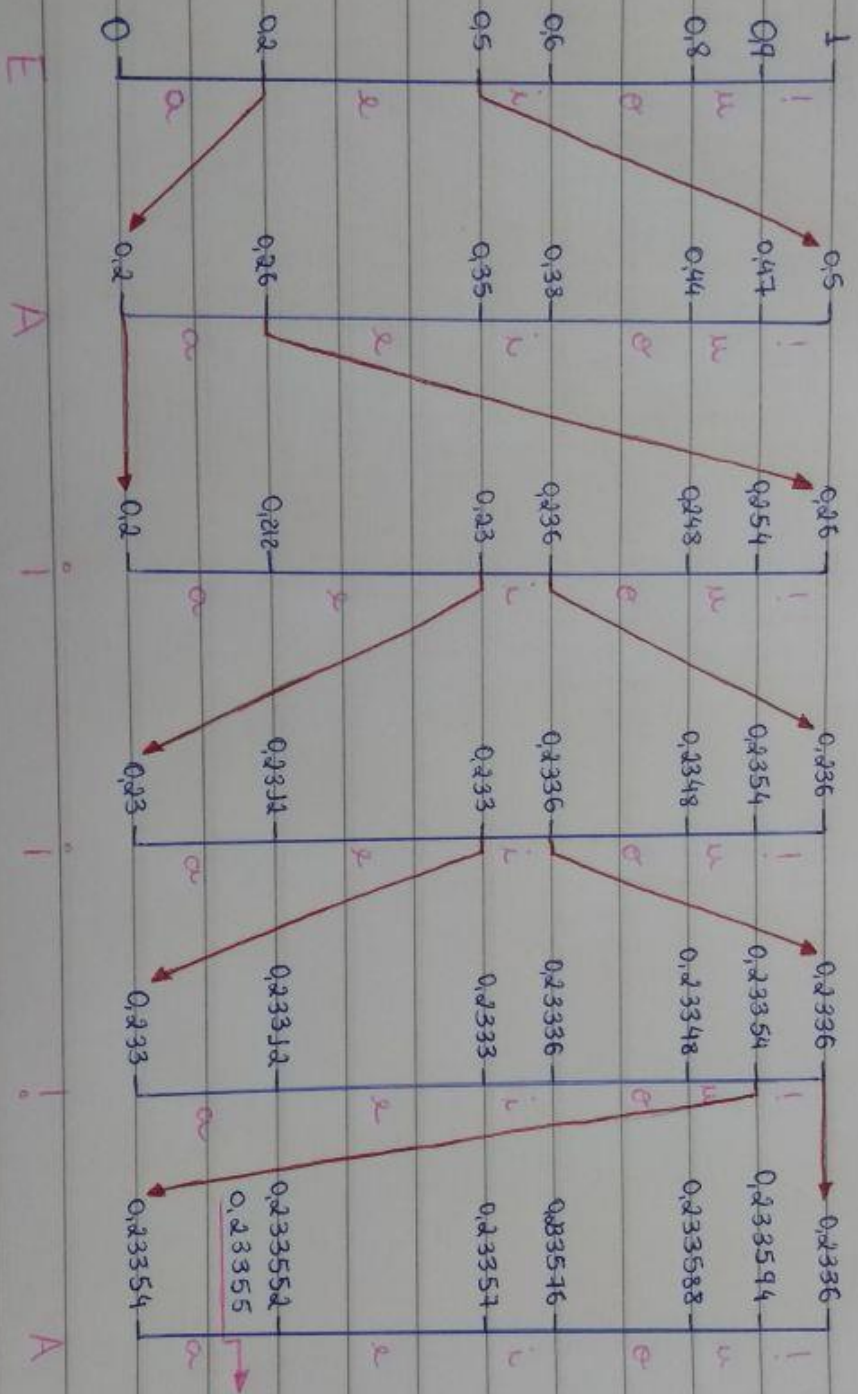 1
0,9
0,8
0,6
0,5
0,2
0
! u o i e a
E
0,5
0,47
0,44
0,38
0,35
0,26
0,2
! u o i e a
A
0,26
0,254
0,248
0,236
0,23
0,212
0,2
! u o i e a
i
0,236
0,2354
0,2348
0,2336
0,233
0,2312
0,23
! u o i e a
i
0,2336
0,23354
0,23348
0,23336
0,2333
0,23312
0,233
! u o i e a
!
0,2336
0,233594
0,233588
0,233576
0,23357
0,233552
0,23355
0,23354
! u o i e a
A